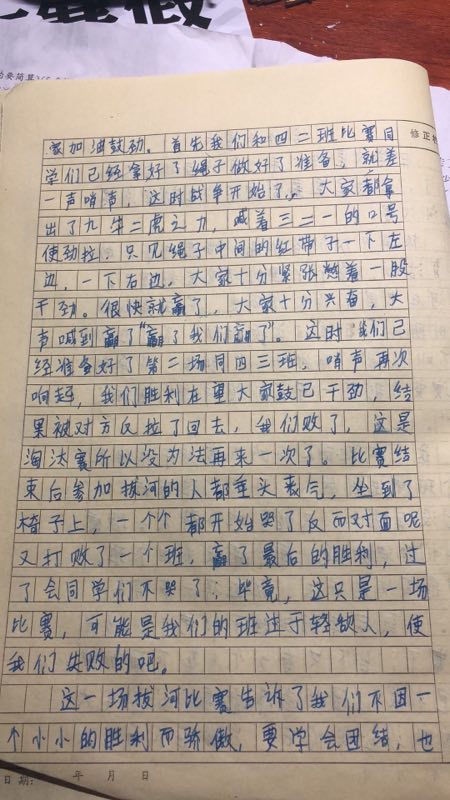 寒假
修正
赛加油鼓劲。首先我们和四二班比赛同
学们已经拿好了绳子做好了准备,就差
一声哨声,这时战争开始了。大家都拿
出了九牛二虎之力,喊着三二一的口号
使劲拉,只见绳子中间的红带子一下左
边,一下右边,大家十分紧张憋着一股
干劲。很快就赢了,大家十分兴奋,大
声喊到赢了“赢了我们赢了”。这时我们已
经准备好了第二场同四三班,哨声再次
响起,我们胜利在望大家鼓已干劲,结
果被对方反拉了回去,我们败了,这是
淘汰赛所以没为法再来一次了。比赛结
束后参加拔河的人都垂头丧气,坐到了
椅子上,一个个都开始哭了反而对面呢
又打败了一个班,赢了最后的胜利,过
了会同学们不哭了;毕竟,这只是一场
比赛,可能是我们的班过于轻敌人,使
我们失败的吧。
这一场拔河比赛告诉了我们不因一
个小小的胜利而骄傲,要学会团结,也
日期: 年 月 日